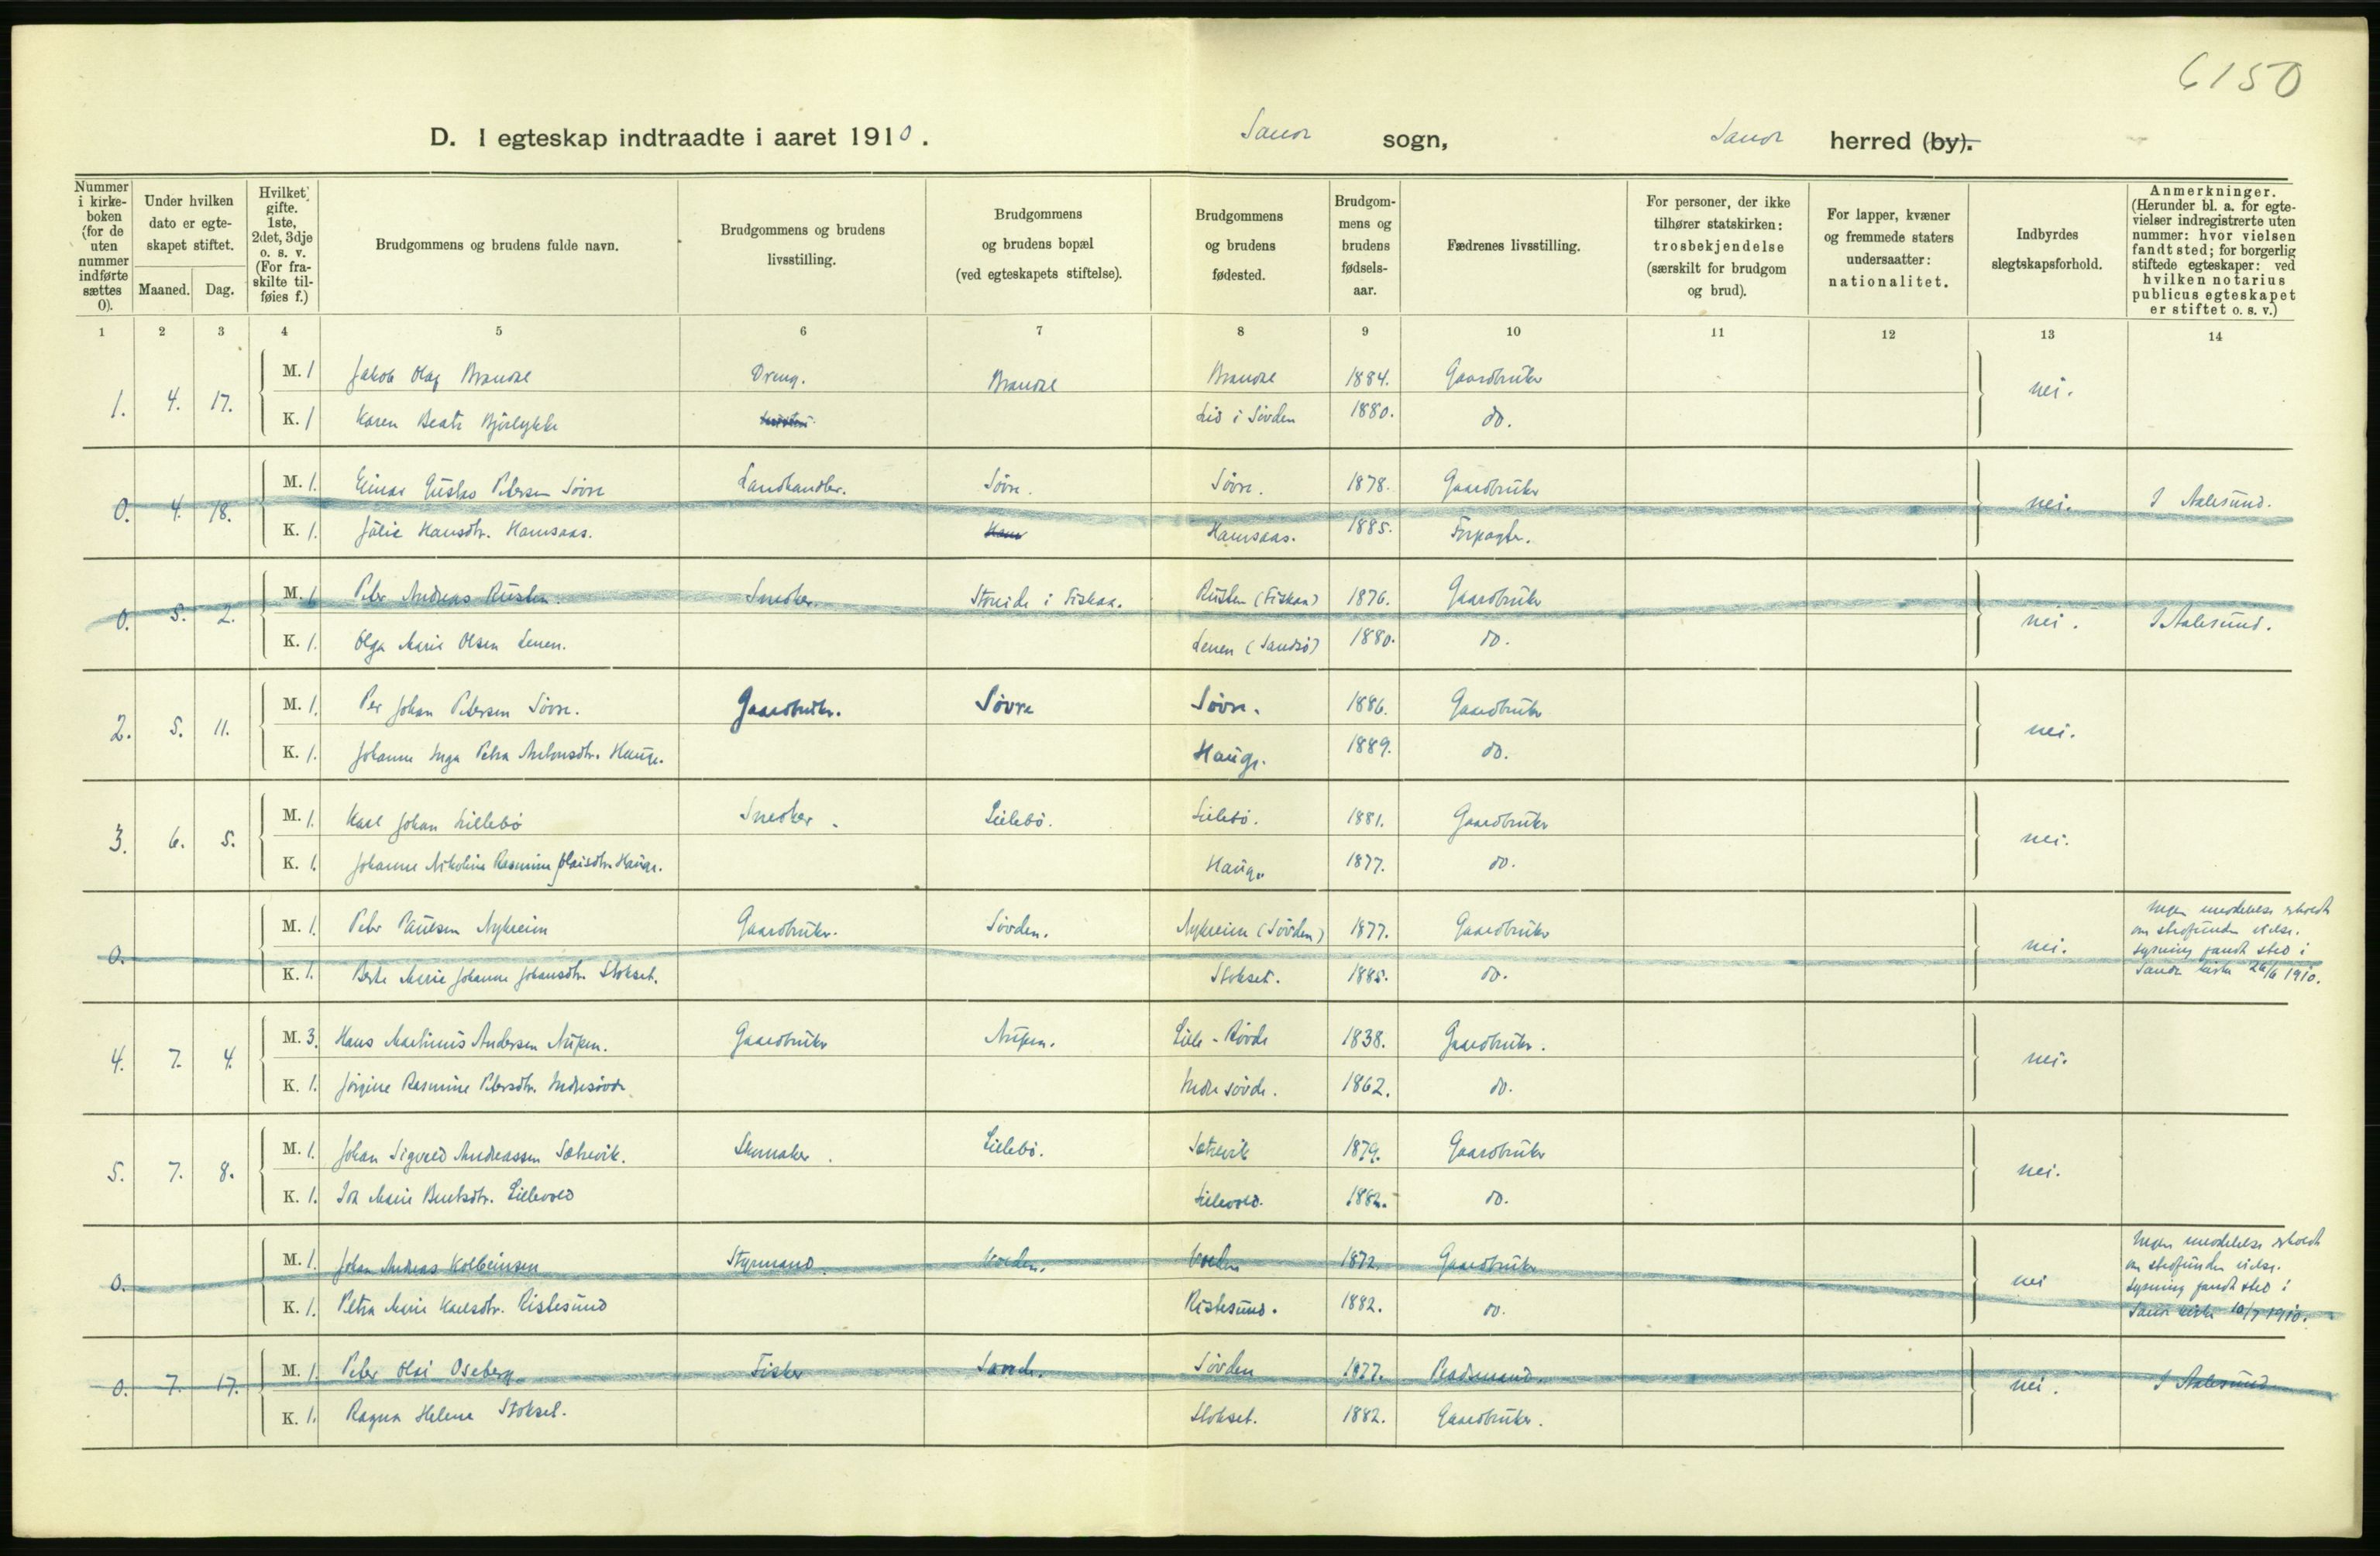 6150
D. I egteskap indtraadte i aaret 1910. Sande sogn, Sande herred (by).
Nummer i kirkeboken (for de uten nummer indførte sættes 0).
Under hvilken dato er egteskapet stiftet.
Maaned. Dag.
Hvilket gifte. 1ste, 2det, 3dje o. s. v. (For fraskilte tilføies f.)
Brudgommens og brudens fulde navn.
Brudgommens og brudens livsstilling.
Brudgommens og brudens bopæl (ved egteskapets stiftelse).
Brudgommens og brudens fødested.
Brudgommens og brudens fødselsaar.
Fædrenes livsstilling.
For personer, der ikke tilhører statskirken: trosbekjendelse (særskilt for brudgom og brud).
For lapper, kvæner og fremmede staters undersaatter: nationalitet.
Indbyrdes slegtskapsforhold.
Anmerkninger. (Herunder bl. a. for egtevielser indregistrerte uten nummer: hvor vielsen fandt sted; for borgerlig stiftede egteskaper: ved hvilken notarius publicus egteskapet er stiftet o. s. v.)
1 2 3 4 5 6 7 8 9 10 11 12 13 14
1. 4. 17. M. 1 Jakob Olaf Brandal Dreng. Brandal Brandal 1884. Gaardbruker nei.
K. 1 Karen Beate Bjørlykke Lid i Søvden 1880. do.
0. 4. 18. M. 1. Einar Gustav Petersen Søvre Landhandler. Søvre. Søvre. 1878. Gaardbruker nei. I Aalesund.
K. 1. Julie Hansdtr. Hamsaas. Ham Hamsaas. 1885. Forpagter.
0. 5. 2. M. 1. Peter Andreas Rusten. Snedker. Storeide i Fiskaa. Rusten (Fiskaa) 1876. Gaardbruker nei. I Aalesund.
K. 1. Olga Marie Olsen Lenen. Lenen (Sandsø) 1880. do.
2. 5. 11. M. 1. Per Johan Petersen Søvre. Gaardbruker. Søvre Søvre. 1886. Gaardbruker nei.
K. 1. Johanne Inga Petra Antonsdtr. Hauge. Hauge. 1889. do.
3. 6. 5. M. 1. Karl Johan Lillebø Snedker. Lillebø. Lillebø. 1881. Gaardbruker nei.
K. 1. Johanne Nikoline Rasmine Olaisdtr. Hauge. Hauge. 1877. do.
0. M. 1. Peter Paulsen Nykreim Gaardbruker. Søvden. Nykreim (Søvden) 1877. Gaardbruker nei. Ingen meddelelse erholdt
om stedfunden vielse.
Lysning fandt sted i
Sande kirke 26/6 1910.
K. 1. Berte Marie Johanne Johansdtr. Stokset. Stokset. 1885. do.
4. 7. 4. M. 3. Hans Martinus Andersen Nupen. Gaardbruker Nupen. Lille-Røvde 1838. Gaardbruker. nei.
K. 1. Jørgine Rasmine Petersdtr. Indresøvde. Indre søvde. 1862. do.
5. 7. 8. M. 1. Johan Sigvald Andreassen Sætrevik. Skomaker. Lillebø. Sætrevik 1879. Gaardbruker nei.
K. 1. Ida Marie Berntsdtr. Lillevold Lillevold. 1882. do.
0. M. 1. Johan Andreas Kolbeinsen Styrmand. Volden. Volden 1872. Gaardbruker nei Ingen meddelelse erholdt
om stedfunden vielse.
Lysning fandt sted i
Sande kirke 10/7 1910.
K. 1. Petra Marie Karlsdtr. Ristesund Ristesund. 1882. do.
0. 7. 17. M. 1. Peter Olai Oseberg Fisker Søvde. Søvden 1877. Pladsmand. nei. I Aalesund
K. 1. Ragna Helene Stokset. Stokset. 1882. Gaardbruker.